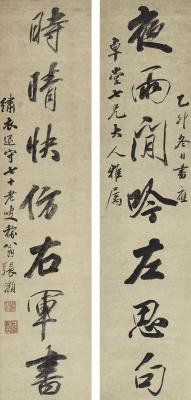 夜雨閒吟左思句
乙卯冬日書應
卓堂七兄大人雅屬
時晴快仿右軍書
繡衣退守七十老叟
張灝